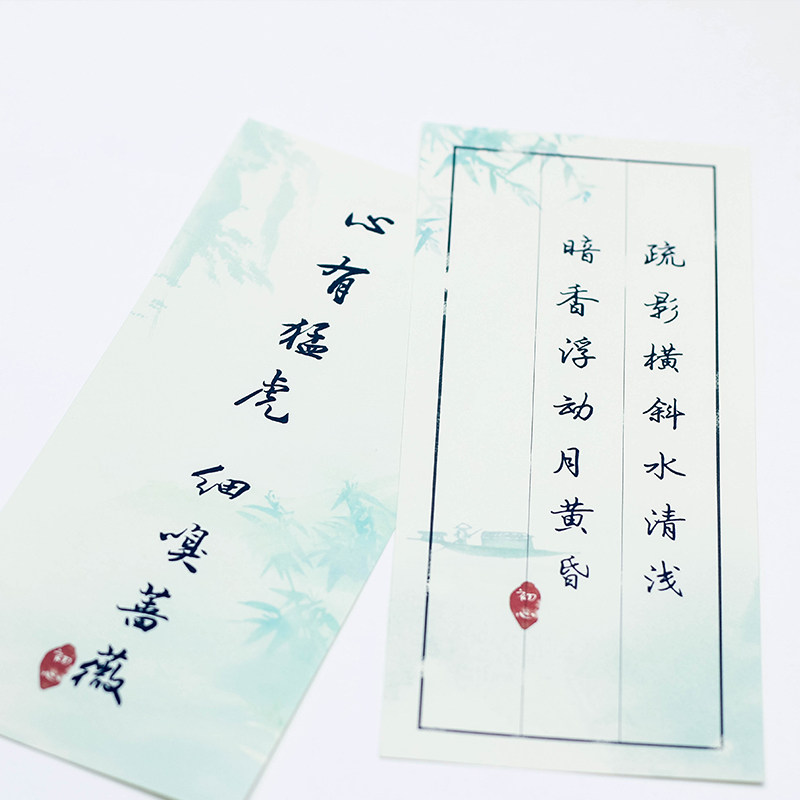 心有猛虎 细嗅蔷薇
初心
疏影横斜水清浅
暗香浮动月黄昏
初心